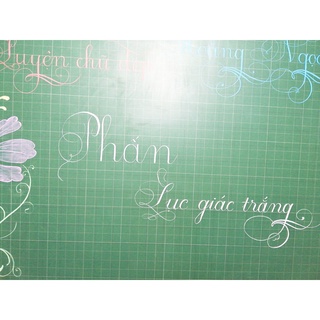 Luyện chữ đẹp Ngọc
Phấn
Lục giác trắng